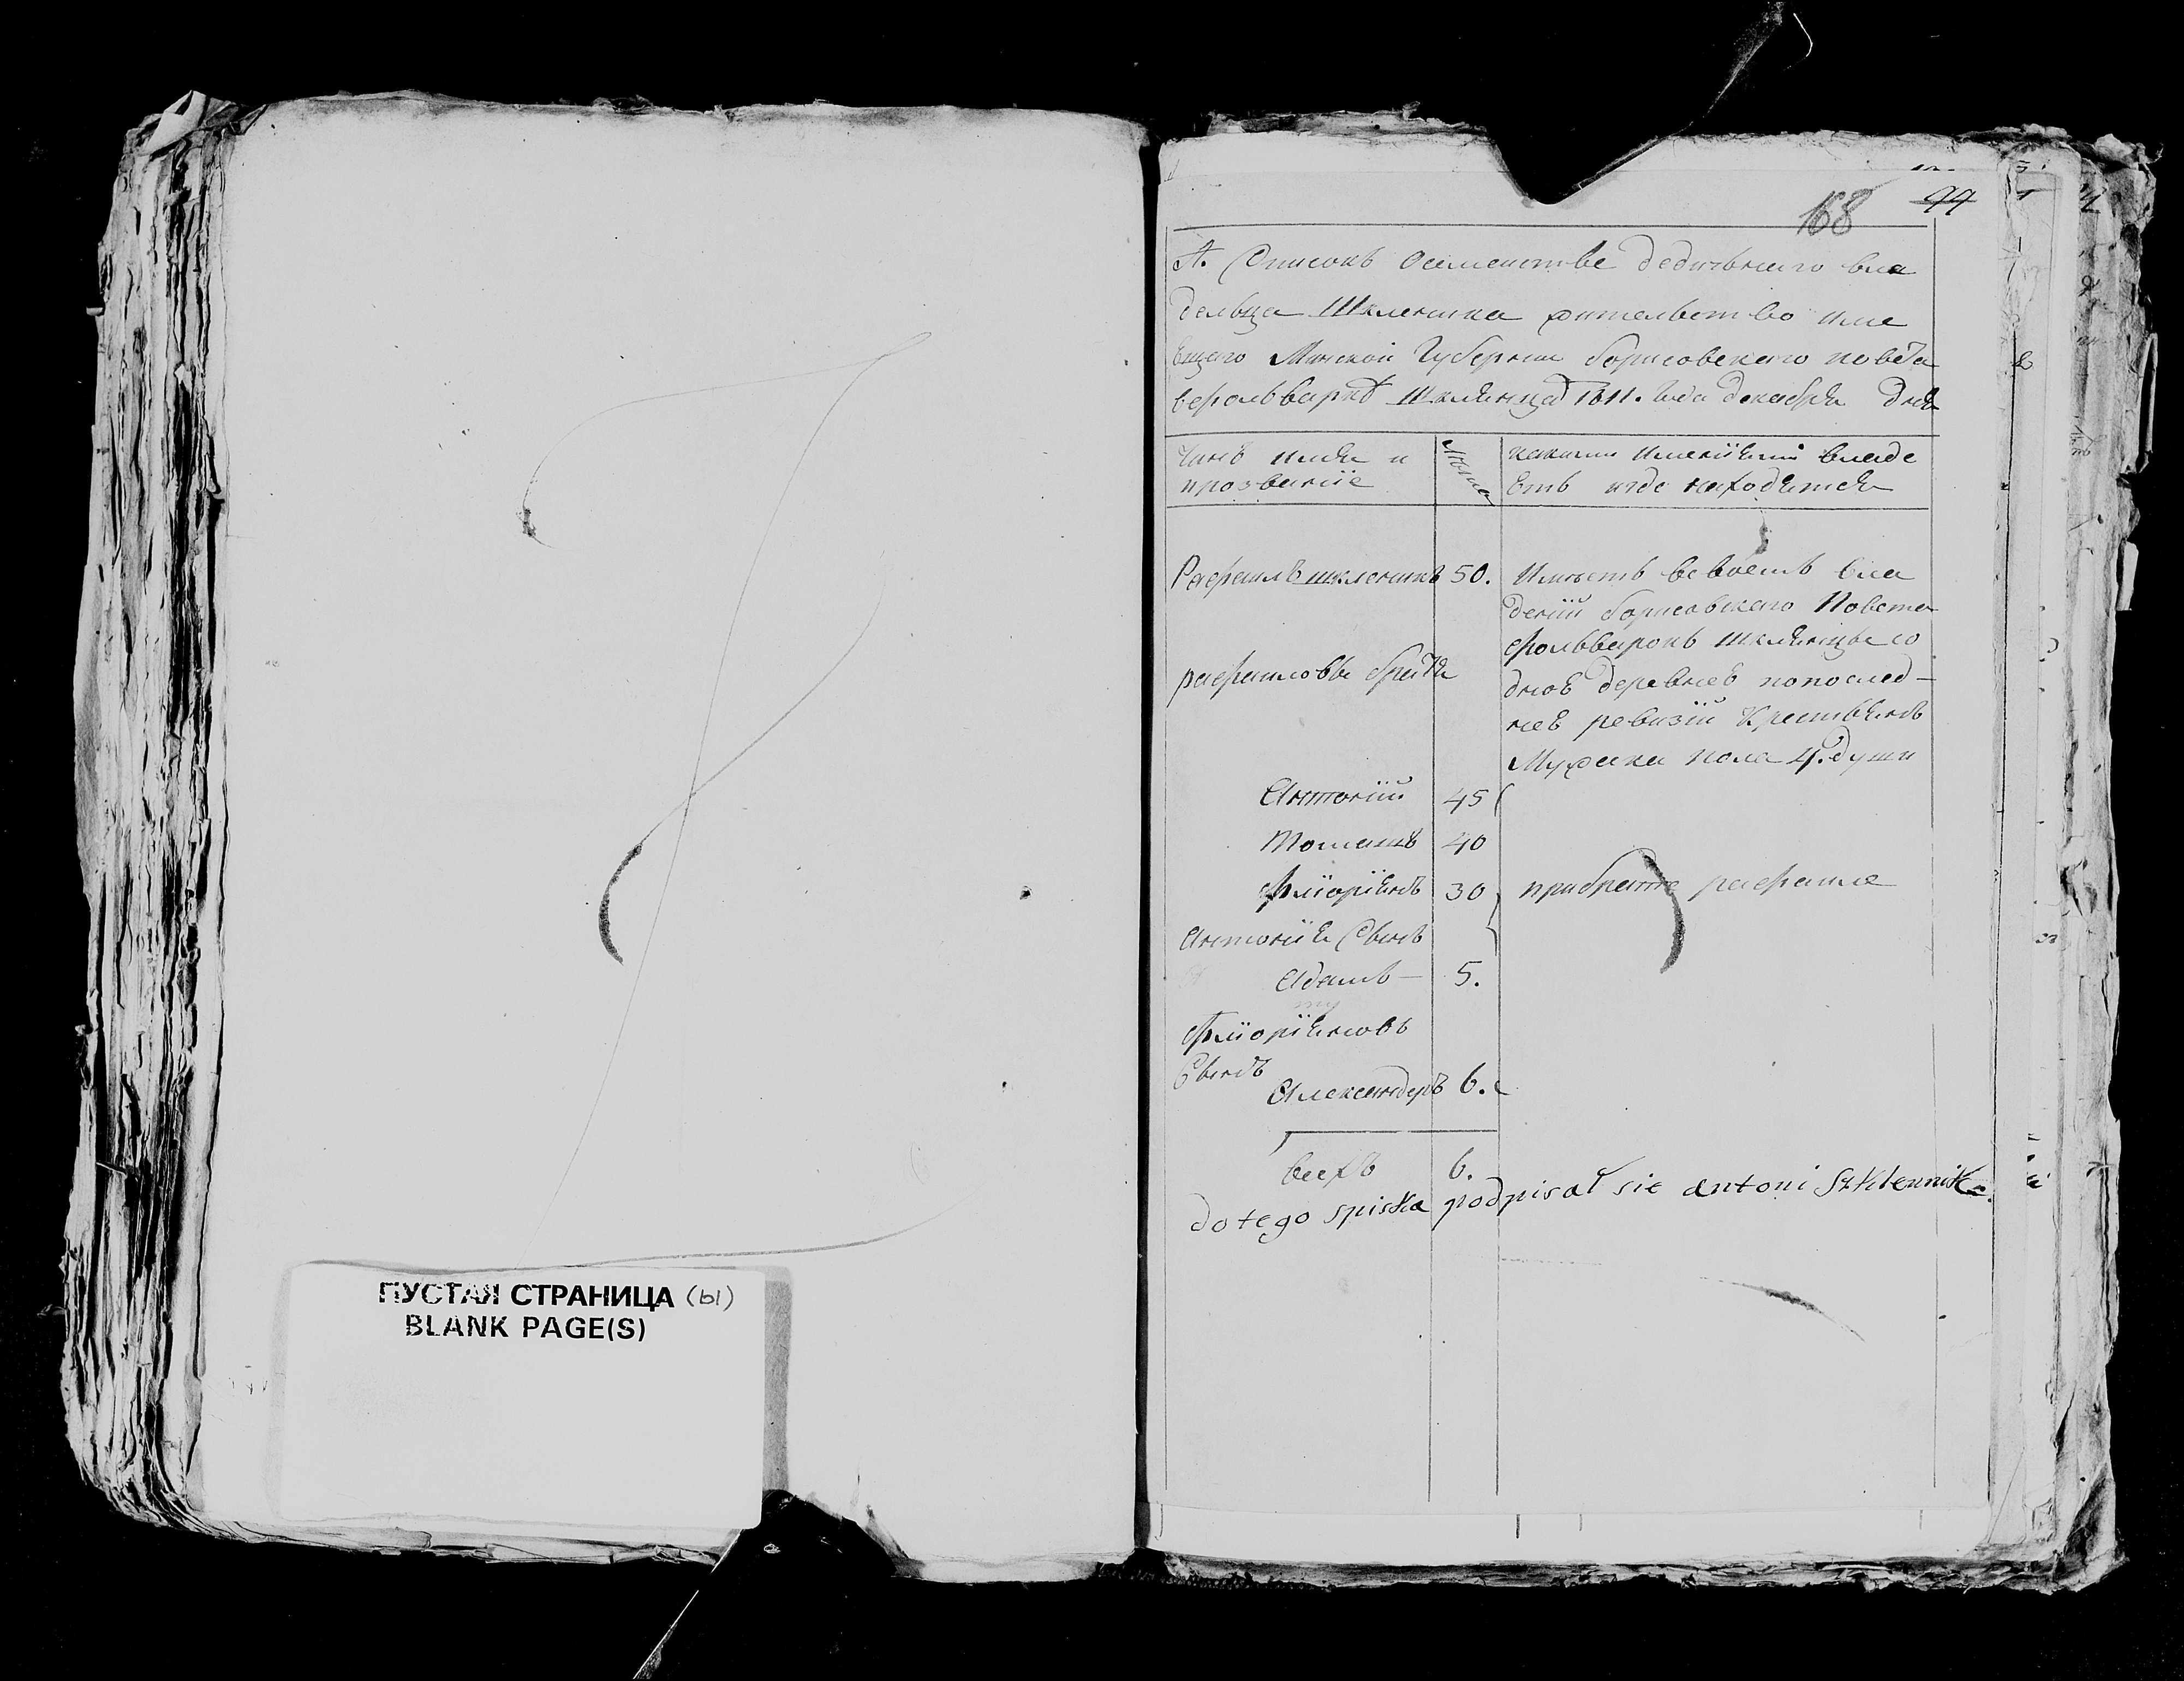 ПУСТАЯ СТРАНИЦА (ы)
BLANK PAGE(S)
168 99
А. Списокъ Осеменстве дедичнаго вла
дельца Шкленика жительство име
ещаго Минской Губернии борисовскаго повѣта
вфольваркѣ Шкляницѣ 1811. Года декабря дня
Чинъ имя и
прозваніе
лѣта
какими имениями владе
етъ игде находятся
Рафаилъ шкленикъ 50.
Имеетъ всвоемъ вла
деніи борисовскаго Повета
фольварокъ шкляницы со
дною деревнею попослед-
ней ревизіи Крестьянъ
Мужска пола 4. души
рафаиловы братя
Антоній 45
Томашъ 40
Фліоріянъ 30 прибратѣ рафаиле
Антонія Сынъ
Адамъ — 5.
Фліоріяновъ
Сынъ
Александеръ 6.
Всехъ 6.
do tego spiska podpisał sie antoni Szklennik